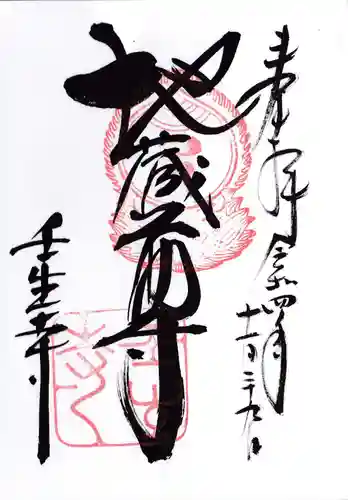 奉拝 令和四年
十一月二十九日
地蔵尊
壬生寺